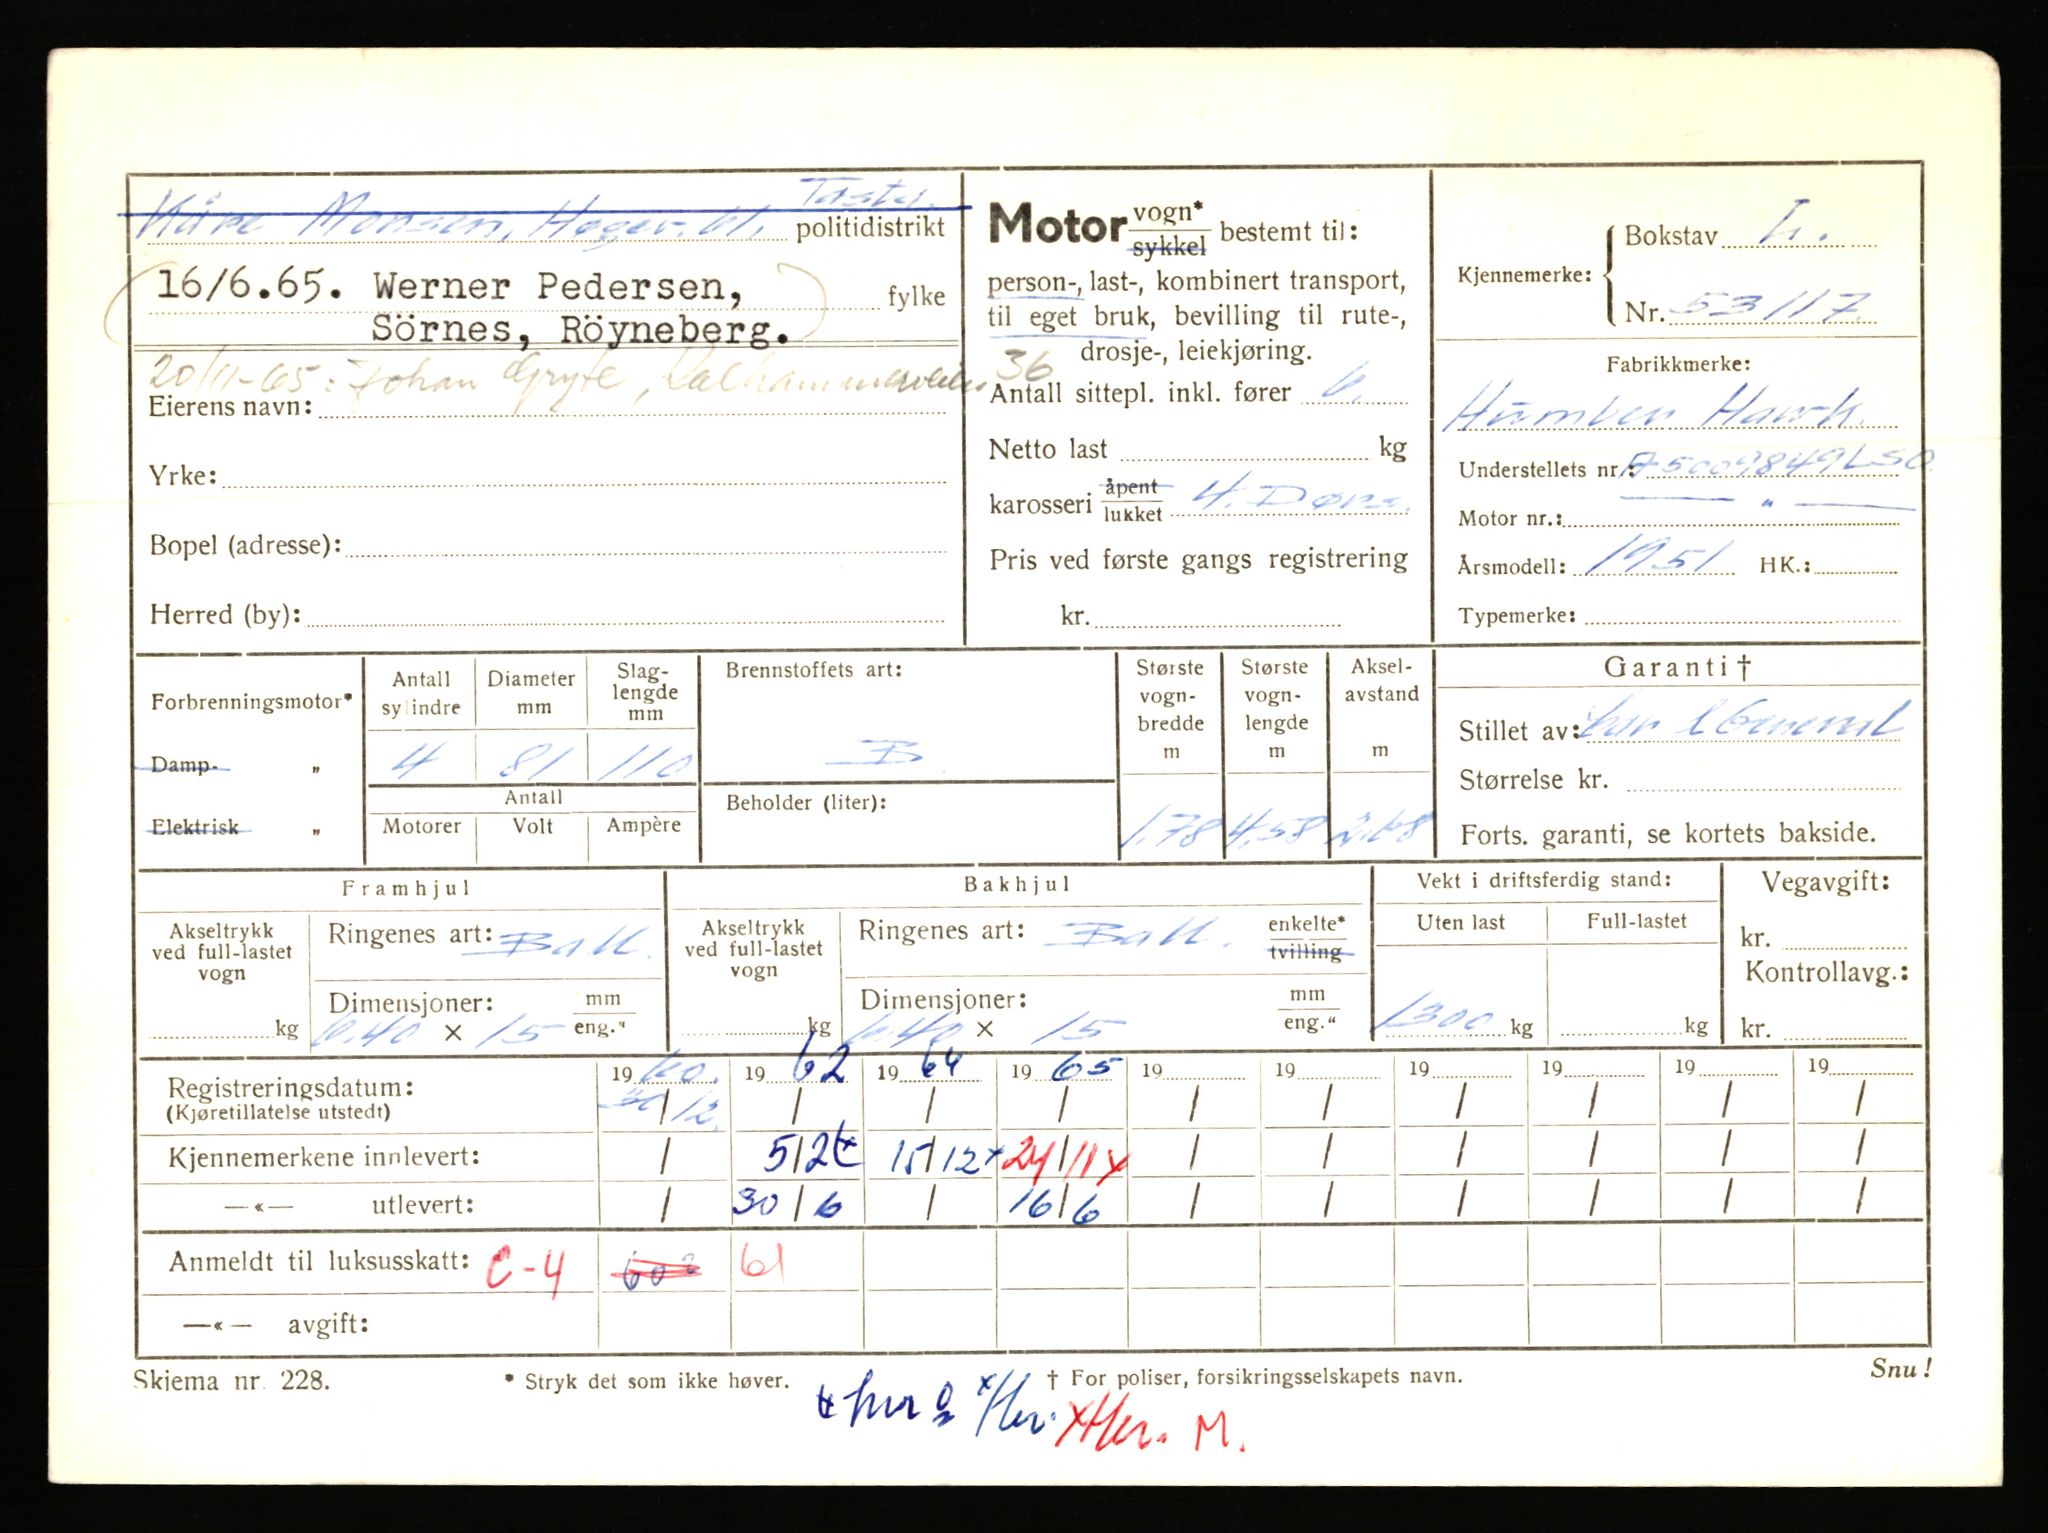 Kåre Monsen, Hagev. 61, Tasta. politidistrikt
16/6.65. Werner Pedersen, fylke
Sörnes, Röyneberg.
20/11-65: Johan Gryte, 36
Eierens navn:
Yrke:
Bopel (adresse):
Herred (by):
Motor vogn* sykkel bestemt til:
person-, last-, kombinert transport,
til eget bruk, bevilling til rute-,
drosje-, leiekjøring.
Antall sittepl. inkl. fører 6.
Netto last kg
karosseri åpent lukket 4. Dørs.
Pris ved første gangs registrering
kr.
Kjennemerke: Bokstav L.
Nr. 53117.
Fabrikkmerke:
Humber Hawk.
Understellets nr.: A5009849LSO
Motor nr.: — " —
Årsmodell: 1951 HK.:
Typemerke:
Forbrenningsmotor*
Damp- „
Elektrisk „
Antall sylindre
Diameter mm
Slag-lengde mm
4 81 110
Antall
Motorer Volt Ampère
Brennstoffets art:
B
Beholder (liter):
Største vogn-bredde m
Største vogn-lengde m
Aksel-avstand m
1.78 4.58 2.68
Garanti †
Stillet av: General
Størrelse kr.
Forts. garanti, se kortets bakside.
Framhjul
Akseltrykk ved full-lastet vogn
kg
Ringenes art: Ball.
Dimensjoner: mm eng."
6.40 × 15
Bakhjul
Akseltrykk ved full-lastet vogn
kg
Ringenes art: Ball. enkelte* tvilling
Dimensjoner: mm eng."
6.40 × 15
Vekt i driftsferdig stand:
Uten last Full-lastet
1300 kg kg
Vegavgift:
kr.
Kontrollavg.:
kr.
Registreringsdatum: 19 60. 19 62 19 64 19 65 19 19 19 19 19 19
(Kjøretillatelse utstedt) 30/12. / / / / / / / / /
Kjennemerkene innlevert: / 5/2 15/12 x 24/11 x / / / / / /
—«— utlevert: / 30/6 / 16/6 / / / / / /
Anmeldt til luksusskatt: C-4 60 61
—«— avgift:
Skjema nr. 228.
* Stryk det som ikke høver.
† For poliser, forsikringsselskapets navn.
Snu!
x Her. x Her. M.